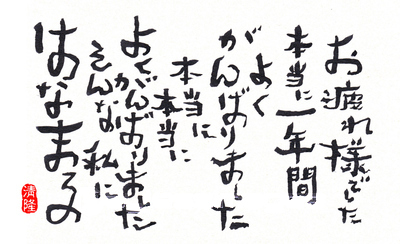 お疲れ様でした
本当に一年間
よく
がんばりました
本当に
本当に
よくがんばりました
そんな私に
はなまるの
清隆